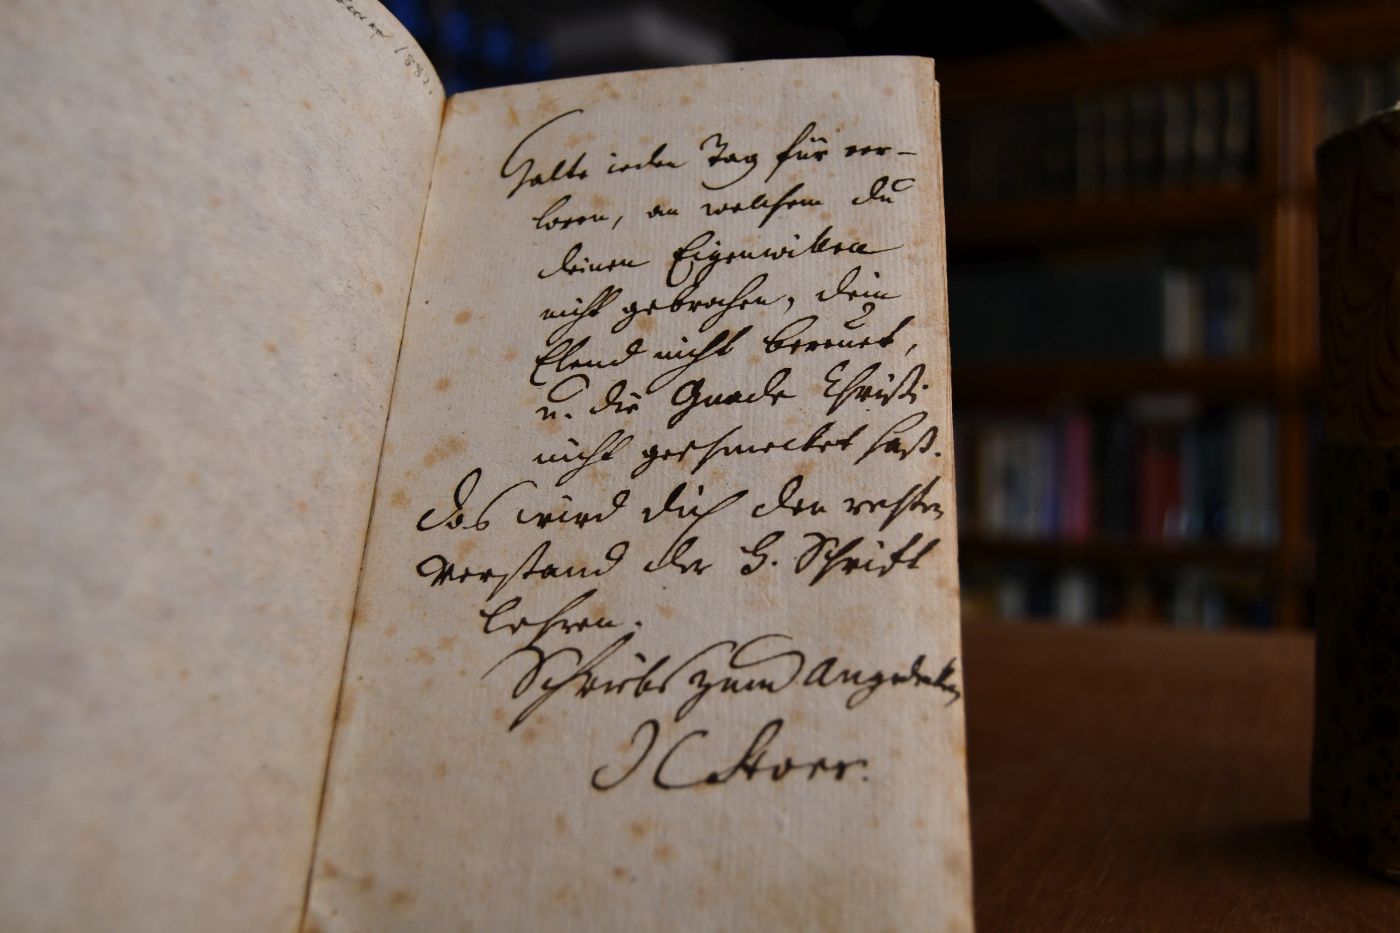 1882.
Halte ieden Tag für ver-
loren, an welchem du
deinen Eigenwillen
nicht gebrochen, dein
Elend nicht bereuet,
u. die Gnade Christi
nicht geschmecket hast.
das wird dich den rechten
Verstand der H. Schrift
lehren.
Schriebs zum Angedenken
JC Storr.